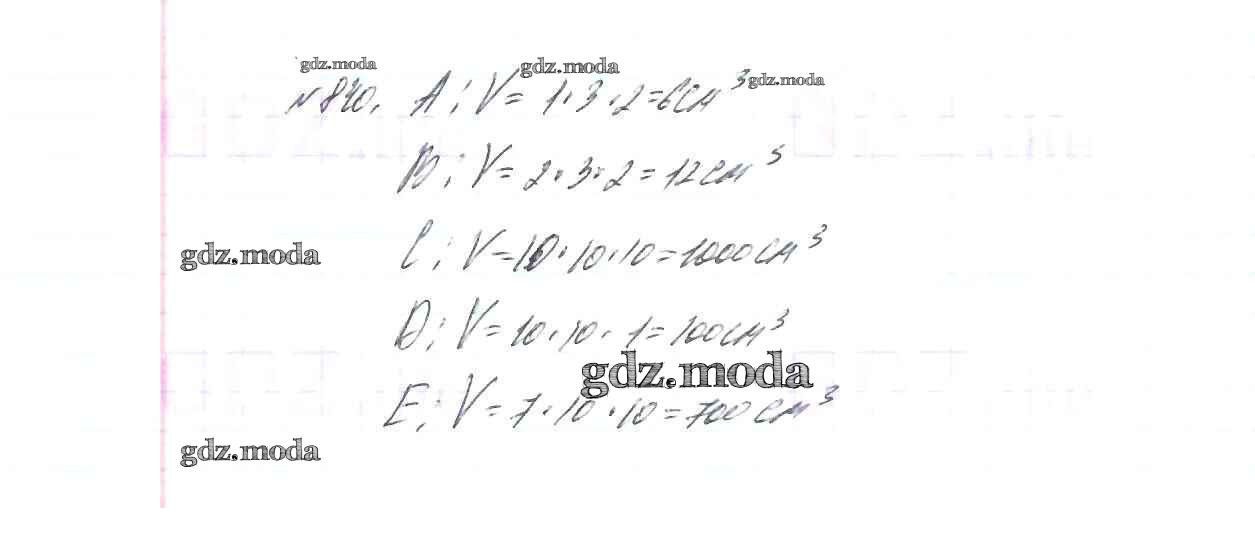 gdz.moda gdz.moda gdz.moda
№840. A; V = 1·3·2=6см³
B; V = 2·3·2=12см³
gdz.moda C; V=10·10·10=1000см³
D; V=10·10·1=100см³
gdz.moda
E; V=7·10·10=700см³
gdz.moda